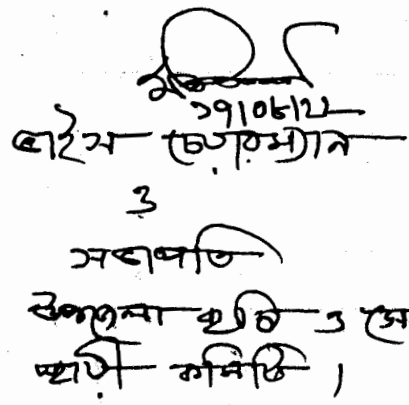 ভাইস চেয়ারম্যান
ও
সভাপতি
উপজেলা কৃষি ও সে
স্থায়ী কমিটি।